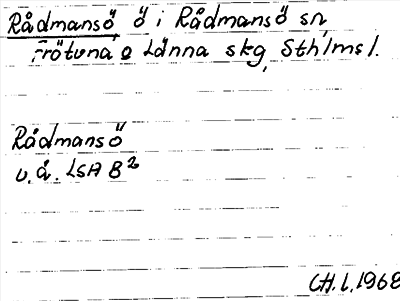 Rådmansö, ö i Rådmansö sn,
Frötuna o Länna skg, Sthlms l.
Rådmansö
u.å. LSA B²
CH.L. 1968